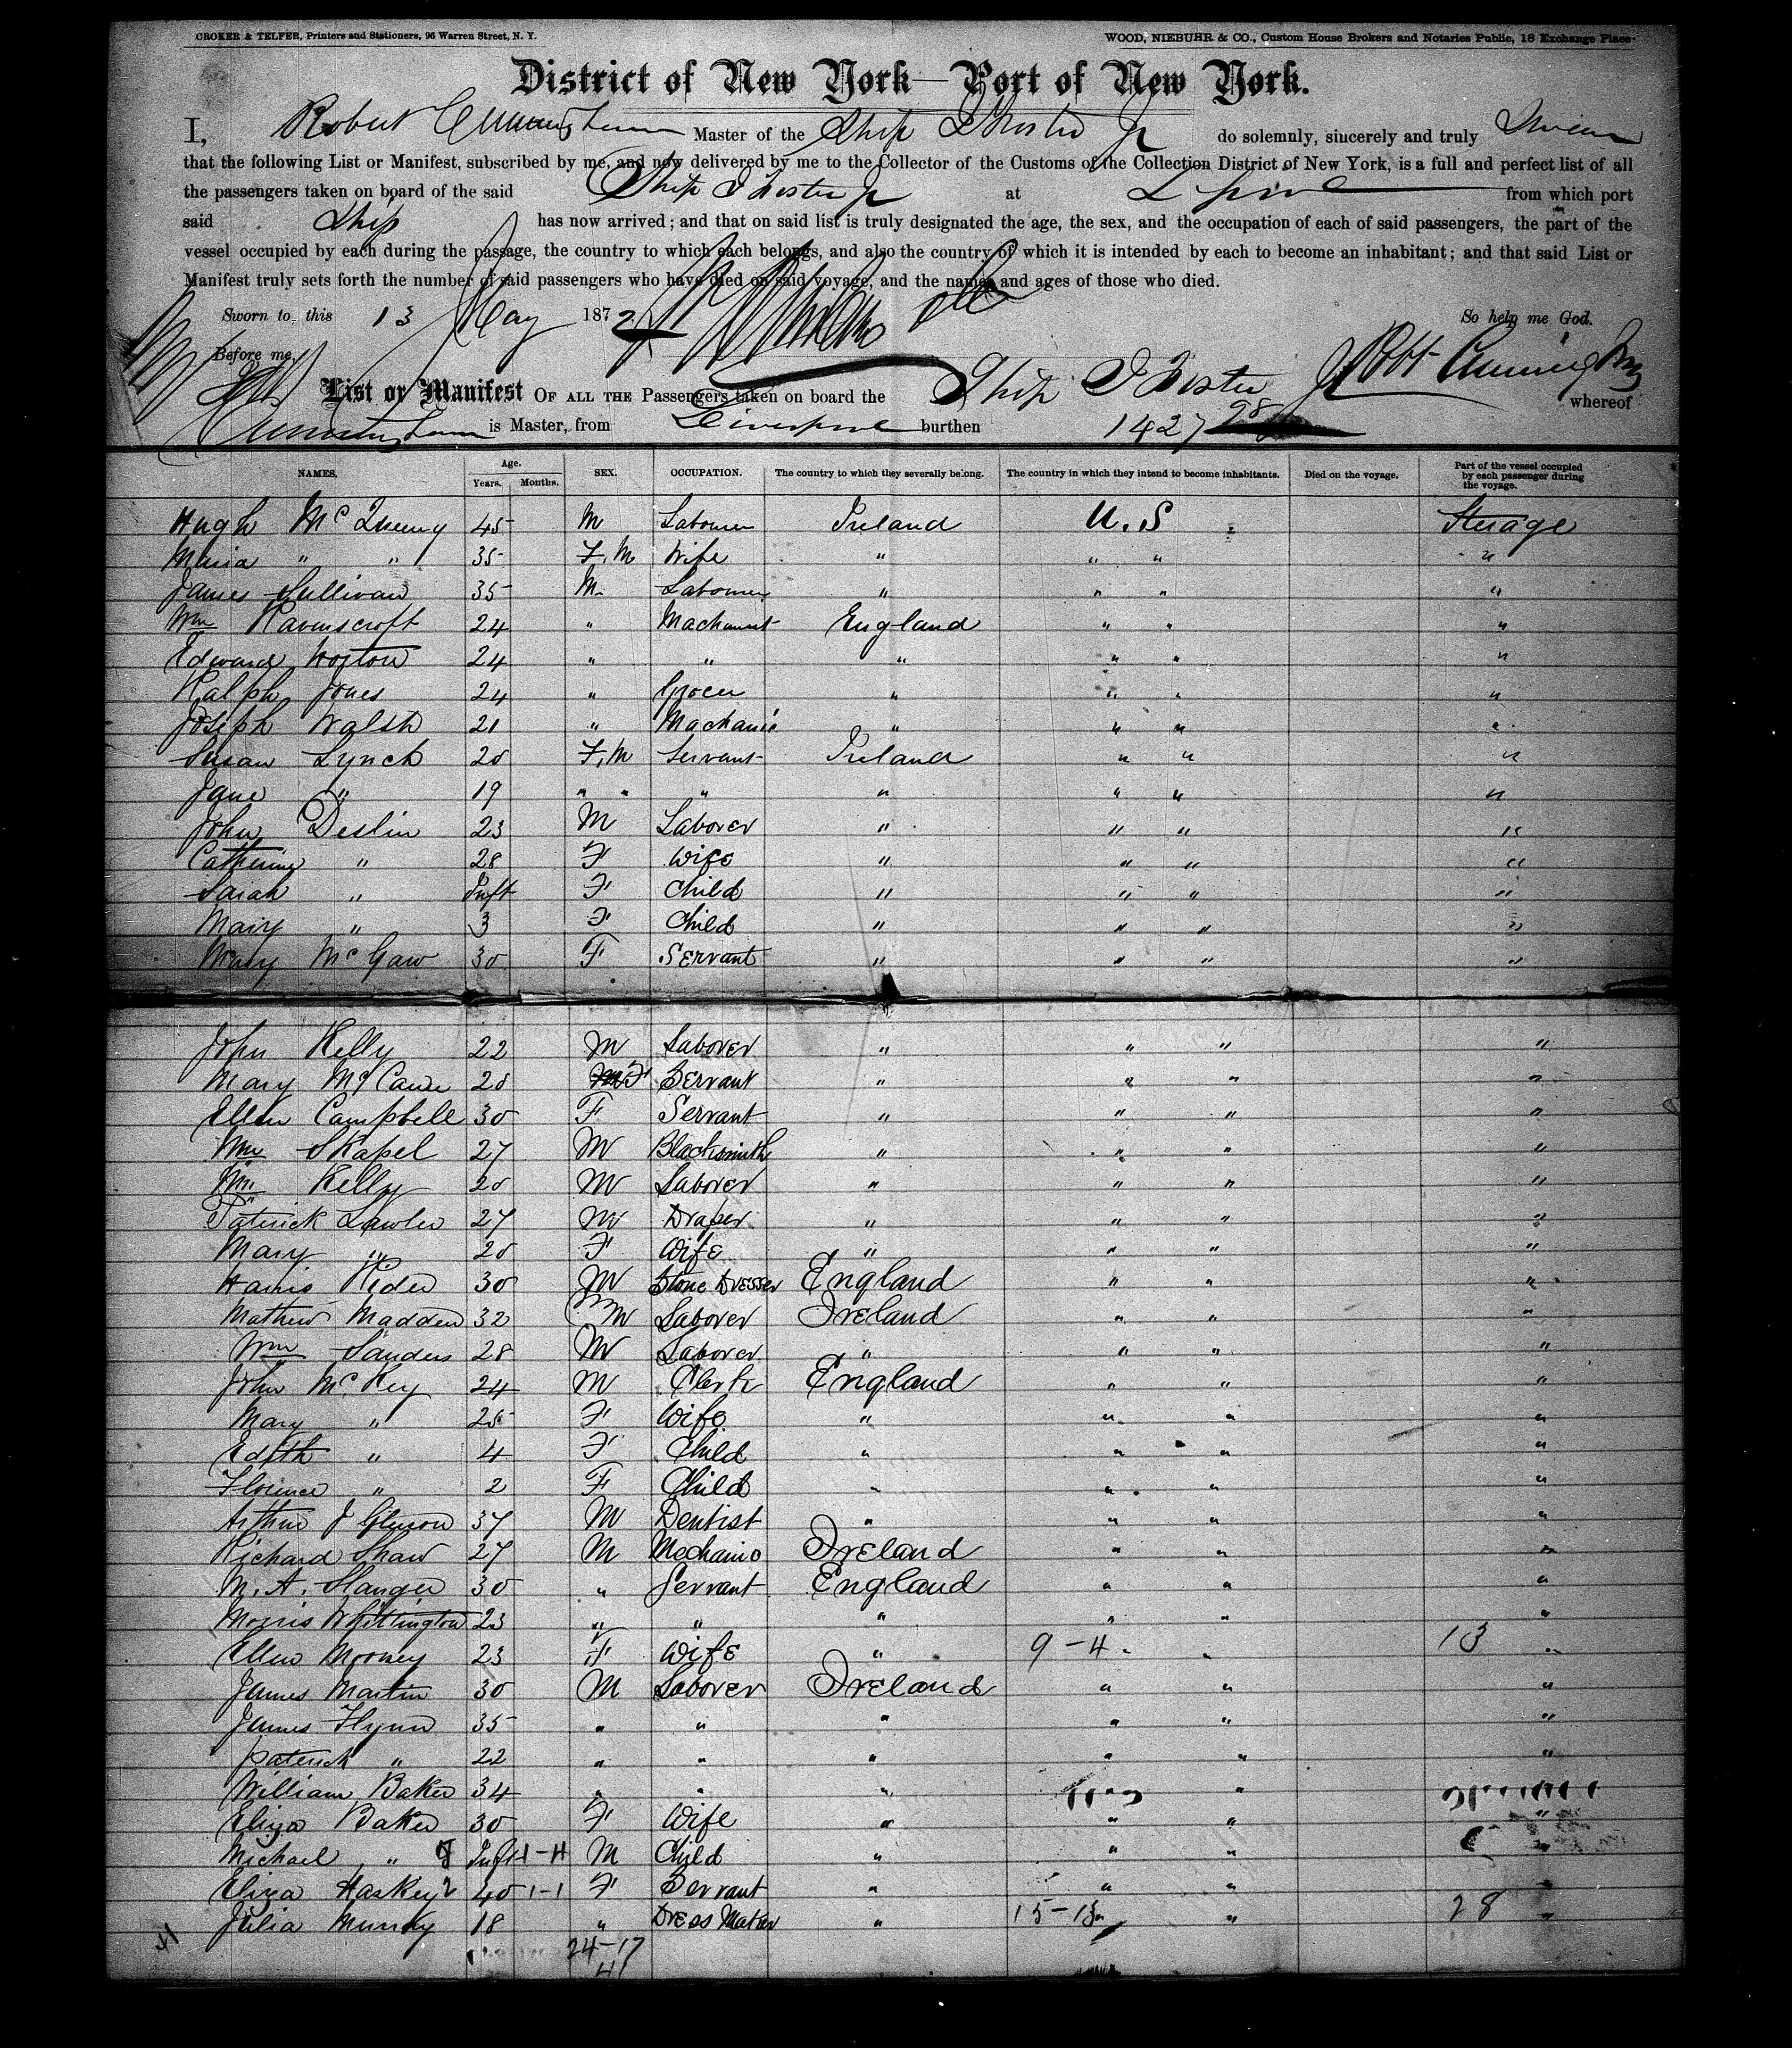 CROKER & TELFER, Printers and Stationers, 96 Warren Street, N. Y. WOOD, NIEBUHR & CO., Custom House Brokers and Notaries Public, 18 Exchange Place
District of New York—Port of New York.
I, Robert Cunningham Master of the Ship J Foster Jr do solemnly, sincerely and truly Swear
that the following List or Manifest, subscribed by me, and now delivered by me to the Collector of the Customs of the Collection District of New York, is a full and perfect list of all
the passengers taken on board of the said Ship J Foster Jr at L'pool from which port
said Ship has now arrived; and that on said list is truly designated the age, the sex, and the occupation of each of said passengers, the part of the
vessel occupied by each during the passage, the country to which each belongs, and also the country of which it is intended by each to become an inhabitant; and that said List or
Manifest truly sets forth the number of said passengers who have died on said voyage, and the names and ages of those who died.
Sworn to this 13 May 1872 So help me God.
Before me, Robt Cunningham
List or Manifest OF ALL THE Passengers taken on board the Ship J Foster Jr whereof
Cunningham is Master, from Liverpool burthen 1427 98
NAMES. Age. Years. Months. SEX. OCCUPATION. The country to which they severally belong. The country in which they intend to become inhabitants. Died on the voyage. Part of the vessel occupied by each passenger during the voyage.
Hugh 45 M Laborer Ireland U.S Sterage
Maria " " 35 F,M Wife " " " "
James Sullivan 35 M. Laborer " " " "
Wm Ravenscroft 24 " England " " "
Edward 24 " " " " " "
Ralph Jones 24 " Grocer " " " "
Joseph Walsh 21 " Machanic " " " "
Susan Lynch 20 F,M Servant Ireland " " "
Jane " 19 " " " " " " "
John Deslin 23 M Laborer " " " "
Catherine " 28 F Wife " " " "
Sarah " Inft F Child " " " "
Mary " 3 F Child " " " "
Mary McGaw 30 F Servant " " " "
John Kelly 22 M Laborer " " " "
Mary 20 F Servant " " " "
Ellen Campbell 30 F Servant " " " "
Wm Skapel 27 M Blacksmith " " " "
Wm Kelly 20 M Laborer " " " "
Patrick Lawler 27 M Draper " " " "
Mary " 20 F Wife " " " "
Harris Rider 30 M Stone Dresser England " " "
Mathew Madden 32 M Laborer Ireland " " "
Wm Sanders 28 M Laborer " " " "
John McKey 24 M Clerk England " " "
Mary " 25 F Wife " " " "
Edith " 4 F Child " " " "
Florence " 2 F Child " " " "
Arthur J 37 M Dentist " " " "
Richard Shaw 27 M Mechanic Ireland " " "
M. A. 30 " Servant England " " "
Morris Whittington 23 " " " " " "
Ellen Mooney 23 F Wife " 9-4 " 13 "
James Martin 30 M Laborer Ireland " " "
James Flynn 35 " " " " " "
Patrick " 22 " " " " " "
William Baker 34 " " " " "
Eliza Baker 30 F Wife " " " "
Michael " Inft 1-4 M Child " " " "
Eliza Haskey 40 1-1 F Servant " " " "
Julia 18 " Dress Maker " 15-13 " 28 "
41 24-17
41